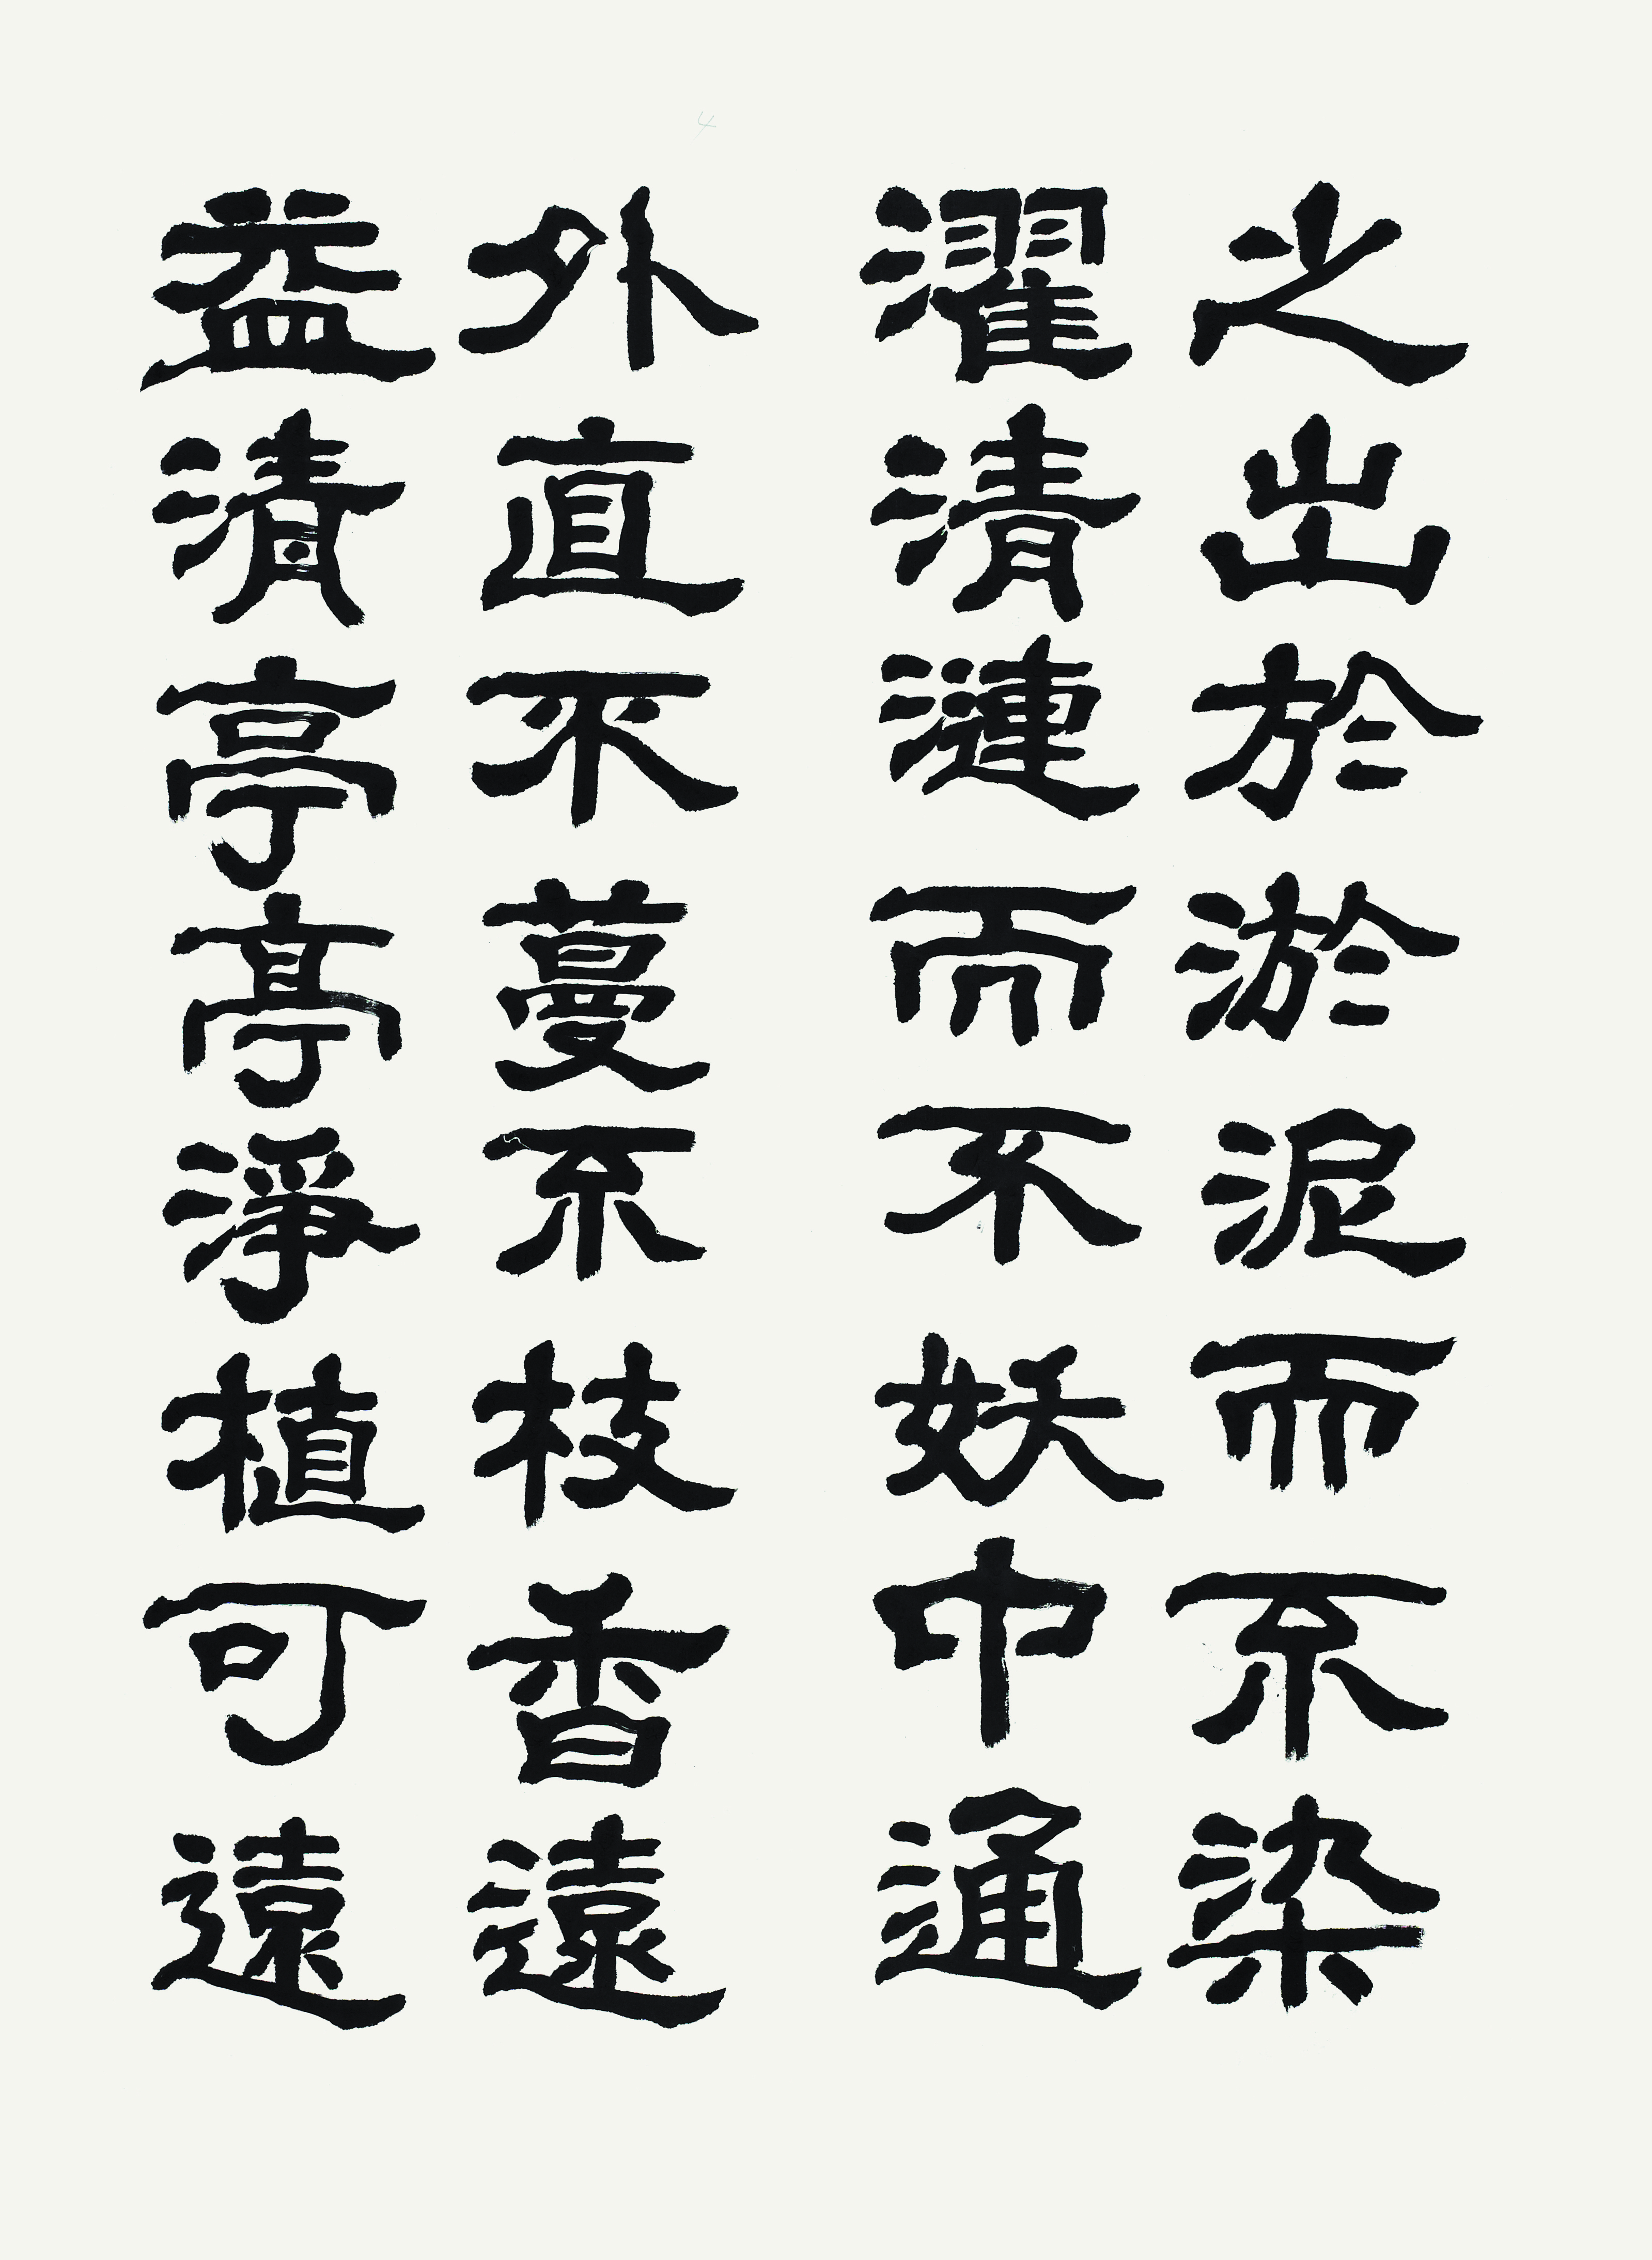 之出於淤泥而不染
濯清漣而不妖中通
外直不蔓不枝香遠
益清亭亭淨植可遠
4